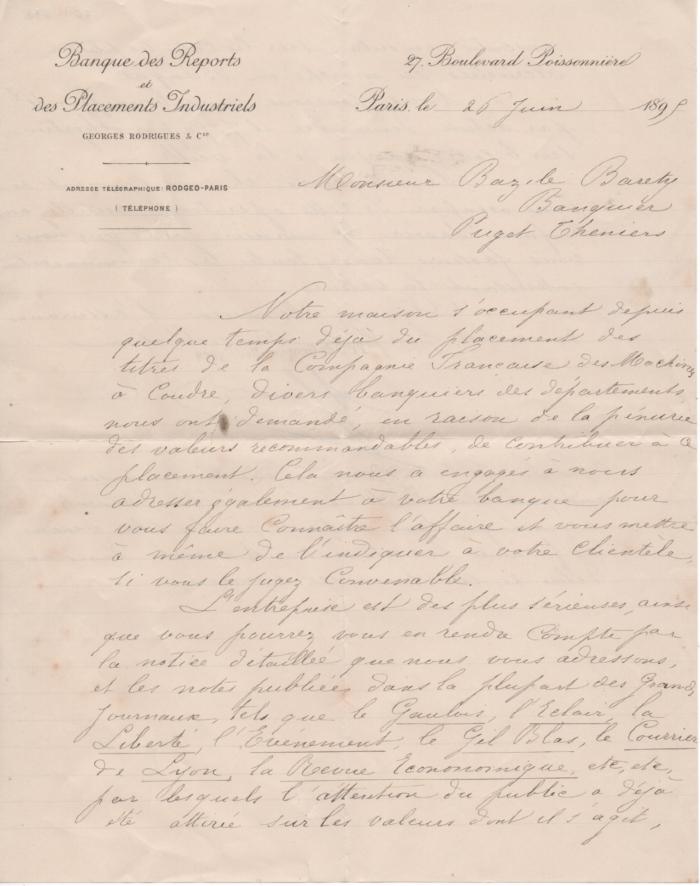 Banque des Reports
et
des Placements Industriels
GEORGES RODRIGUES & Cie
ADRESSE TÉLÉGRAPHIQUE: RODGEO-PARIS
(TÉLÉPHONE)
27, Boulevard Poissonnière
Paris, le 26 Juin 1895
Monsieur Bazile Barety
Banquier
Puget Theniers
Notre maison s'occupant depuis
quelque temps déjà du placement des
titres de la Compagnie Française des Machines
à Coudre, divers banquiers des départements,
nous ont demandé, en raison de la pénurie
des valeurs recommandables, de contribuer à ce
placement. Cela nous a engagés à nous
adresser également à votre banque pour
vous faire Connaître l'affaire et vous mettre
à même de l'indiquer à votre Clientèle,
si vous le jugez Convenable.
L'entreprise est des plus sérieuses, ainsi
que vous pourrez vous en rendre Compte par
la notice détaillée que nous vous adressons,
et les notes publiées dans la plupart des Grands
Journaux, tels que le Gaulois, l'Eclair, la
Liberté, l'Evénement, le Gil Blas, le Courrier
de Lyon, la Revue Econonomique, etc, etc,
par lesquels l'attention du public a déjà
été attirée sur les valeurs dont il s'agit,